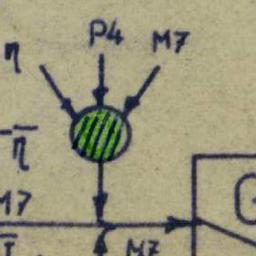 η P4 M7
-η̅
M7
M7